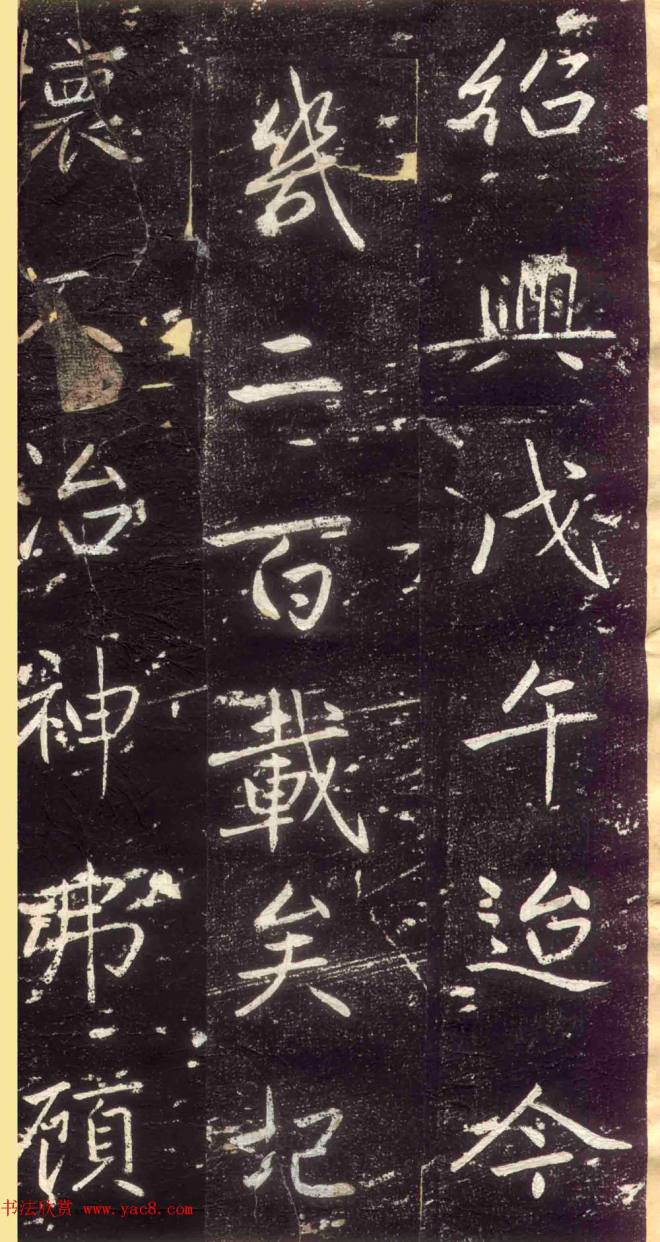 紹興戊午迨今
幾二百載矣圮
壞不治神弗顧
书法欣赏 www.yac8.com